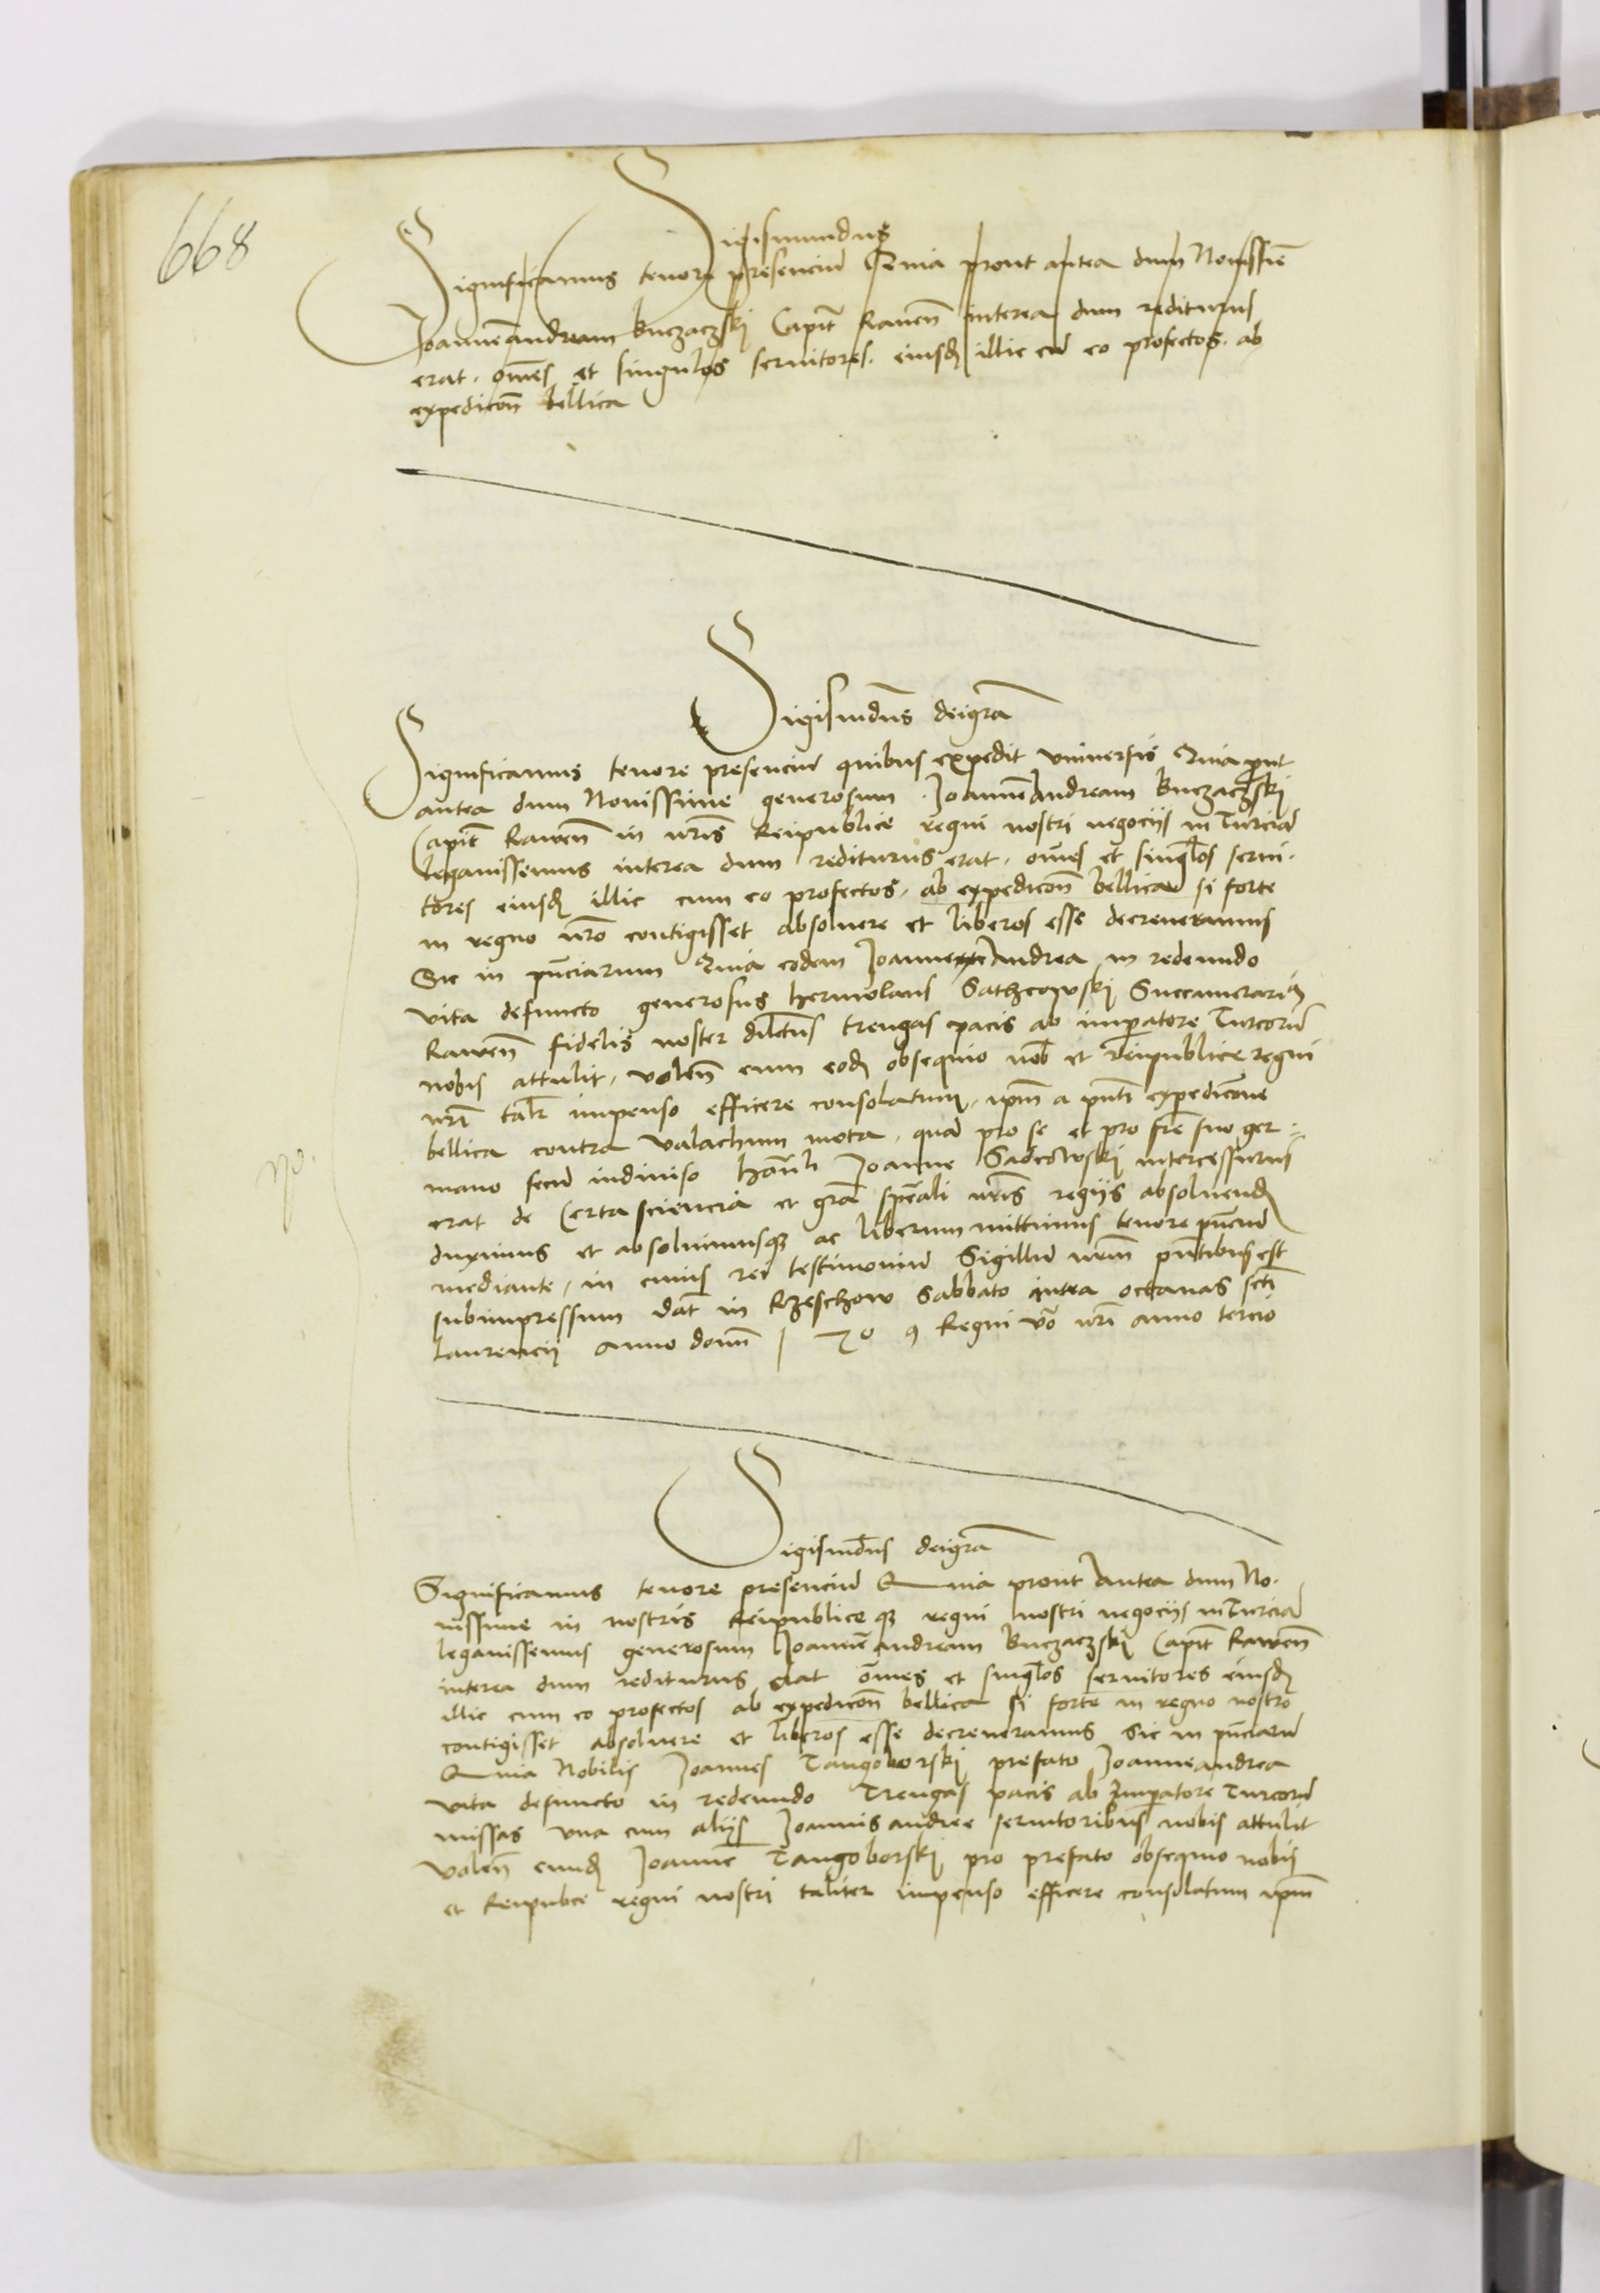 668
Sigismundus
Significamus tenore presenciu Quia prout antea dum Nouissie
Joanneandream Buczaczskj Capit Rauen interea dum rediturus
erat. omes et singulos seruitores. eiusd illic cu eo profectos. ab
expedicon bellica
Sigismdus deigra
Significamus tenore presenciu quibus expedit vniuersis Quia put
antea dum Nouissime generosum Joannéandream Buczaczskj
Capit Rawen in nris Reipublice regni nostri negocijs in Turcia
legauissemus interea dum rediturus erat. omes et singlos serui.
tores eiusd illic cum eo profectos. ab expedicon bellica si forte
in regno nro contigisset absoluere et liberos esse decreueramus
Sic in pnciarum Quia eodem Joanne Andrea in redeundo
vita defuncto generosus hermolaus Sathcowski Succamerari9
Rawen fidelis noster dilectus treugas pacis ab imperatore Turcoru
nobis attulit. volen eum eod obsequio nob et Reipublice regni
nri talr impenso efficere consolatum. ipm a pnti expedicone
bellica contra valachum mota. qua pro se et pro fre suo ger=
mano secu indiuiso Joanne Sadcowski intercessurus
erat de Certa sciencia et gra speali nris regijs absoluend
duximus et absoluimusqz ac liberum mittimus tenore pnciu
mediante. in cuius rei testimoniu Sigillu nrum pntibus est
subimpressum dat in Rzeschow Sabbato intra octauas scti
laurencij anno domi | 9 Regni vo nri anno tercio
Sigismdus deigra
Significamus tenore presenciu Quia prout Antea dum No.
uissime in nostris Reipublice qz regni nostri negocijs in Turcia
legauissemus generosum Joanneandream Buczaczskj Capit Rawen
interea dum rediturus erat omes et singlos seruitores eiusd
illic cum eo profectos ab expedicon bellica si forte in regno nostro
contigisset absoluere et liberos esse decreueramus Sic in pnciaru
Quia Nobilis Joannes Tangoborski prefato Joanneandrea
vita defuncto in redeundo Treugas pacis ab imperatore Turcoru
missas vna cum alijs Joannisandree seruitoribus nobis attulit
volen eund Joanne Tangoborski pro prefato obsequio nobis
et Reipubce regni nostri taliter impenso efficere consolatum ipm